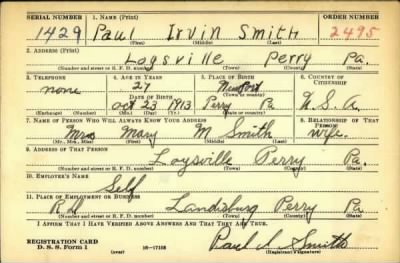 SERIAL NUMBER 1. NAME (Print) ORDER NUMBER
1429 Paul Irvin Smith 2495
(First) (Middle) (Last)
2. ADDRESS (Print)
Loysville Perry Pa.
(Number and street or R. F. D. number) (Town) (County) (State)
3. TELEPHONE 4. AGE IN YEARS 5. PLACE OF BIRTH 6. COUNTRY OF CITIZENSHIP
none 27 Newport
DATE OF BIRTH (Town or county)
Oct 23 1913 Perry Pa U. S. A.
(Mo.) (Day) (Yr.) (State or country)
7. NAME OF PERSON WHO WILL ALWAYS KNOW YOUR ADDRESS 8. RELATIONSHIP OF THAT PERSON
Mrs Mary M Smith wife.
(Mr., Mrs., Miss) (First) (Middle) (Last)
9. ADDRESS OF THAT PERSON
Loysville Perry Pa.
(Number and street or R. F. D. number) (Town) (County) (State)
10. EMPLOYER'S NAME
Self
11. PLACE OF EMPLOYMENT OR BUSINESS
R D Landisburg Perry Pa
(Number and street or R. F. D. number) (Town) (County) (State)
I AFFIRM THAT I HAVE VERIFIED ABOVE ANSWERS AND THAT THEY ARE TRUE.
REGISTRATION CARD
D. S. S. Form 1 (over) 16—17105 Paul I. Smith
(Registrant's signature)